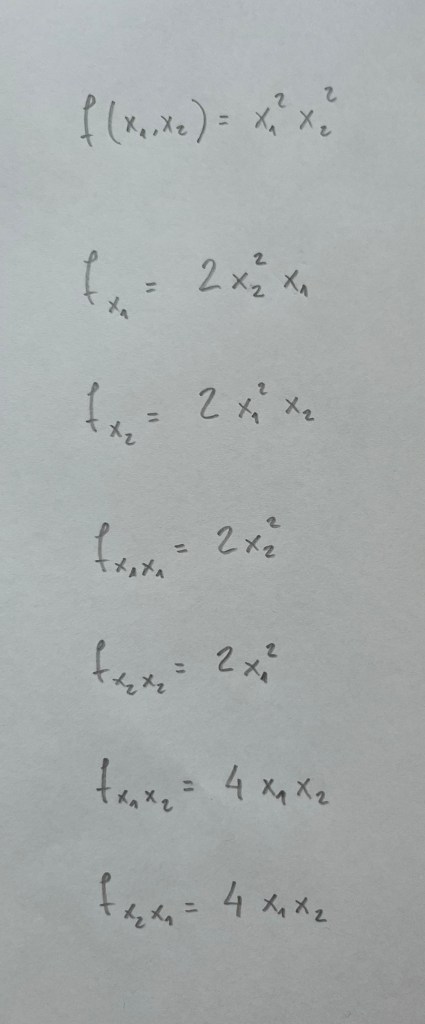 f(x₁,x₂) = x₁² x₂²
f_x₁ = 2 x₂² x₁
f_x₂ = 2 x₁² x₂
f_x₁x₁ = 2 x₂²
f_x₂x₂ = 2 x₁²
f_x₁x₂ = 4 x₁ x₂
f_x₂x₁ = 4 x₁ x₂